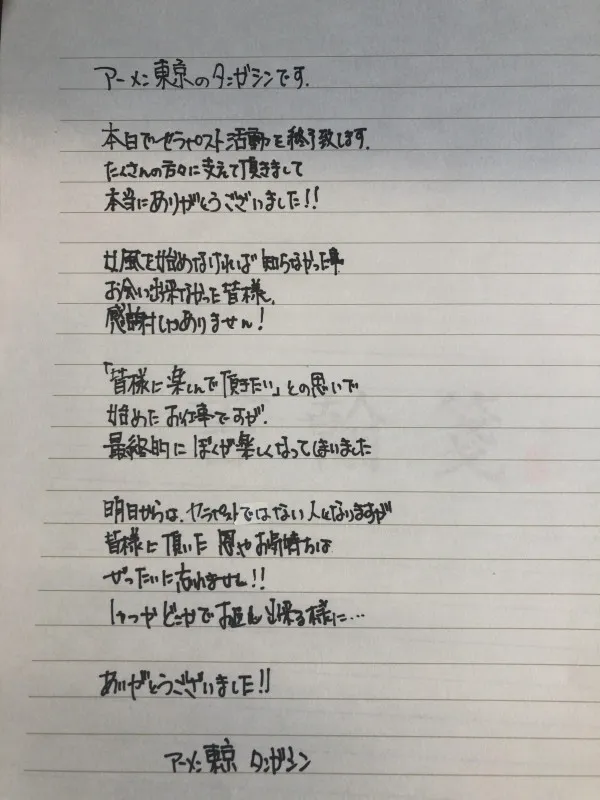 アーメン東京のタンガシンです.
本日でセラピスト活動を終了致します.
たくさんの方々に支えて頂きまして
本当にありがとうございました!!
女風を始めなければ 知らなかった事
お会い出来なかった皆様.
感謝しかありません!
「皆様に楽しんで頂きたい」との思いで
始めた お仕事ですが.
最終的に ぼくが楽しくなってしまいました
明日からは、セラピストではない人になりますが
皆様に頂いた 恩やお気持ちは
ぜったいに忘れません!!
いつか どこかで お逢い出来る様に…
ありがとうございました!!
アーメン東京 タンガシン